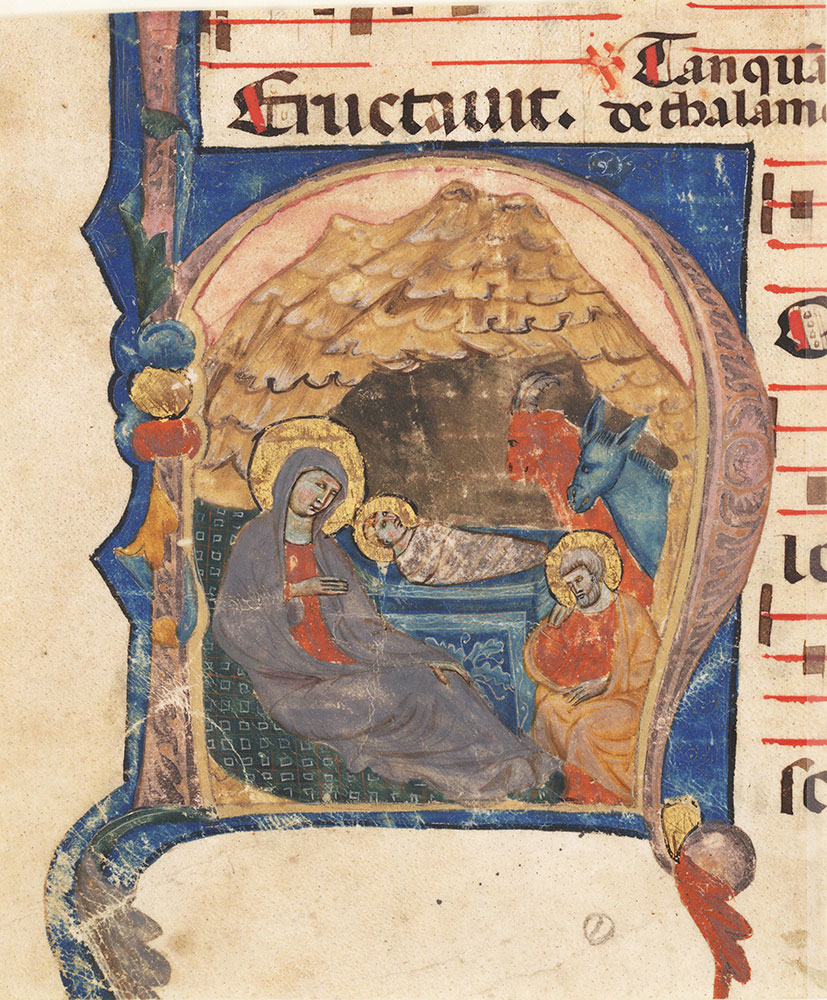 Eructauit.
Tanquã
de thalamo